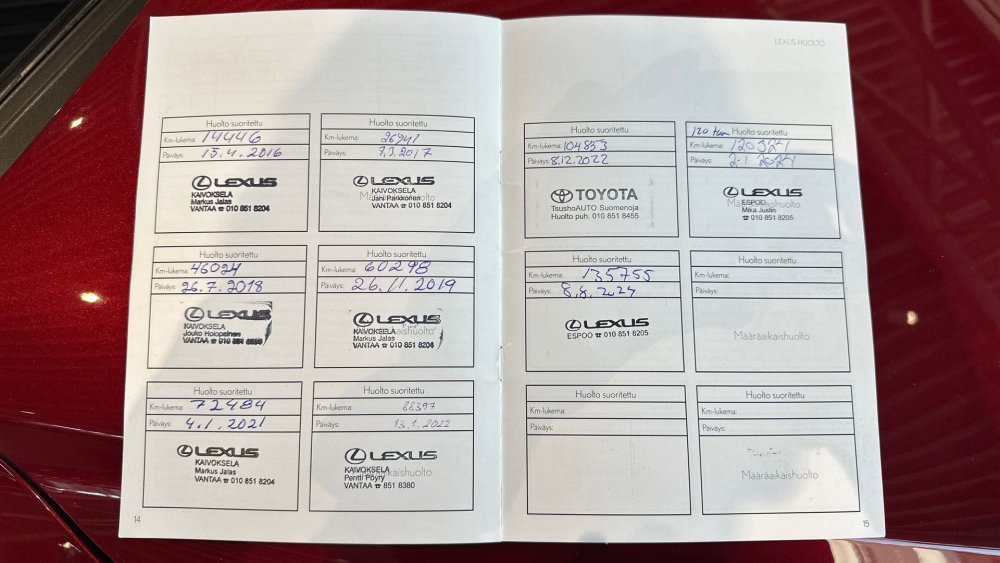 Huolto suoritettu
Km-lukema: 14446
Päiväys: 15.4.2016
LEXUS
KAIVOKSELA
Markus Jalas
VANTAA ☎ 010 851 8204
Huolto suoritettu
Km-lukema: 26941
Päiväys: 7.3.2017
LEXUS
KAIVOKSELA
Jani Parkkonen
VANTAA ☎ 010 851 8204
Huolto suoritettu
Km-lukema: 46024
Päiväys: 26.7.2018
LEXUS
KAIVOKSELA
Jouko Holopainen
VANTAA ☎ 010
Huolto suoritettu
Km-lukema: 60298
Päiväys: 26.11.2019
LEXUS
KAIVOKSELA
Markus Jalas
VANTAA ☎ 010 851 8204
Huolto suoritettu
Km-lukema: 72484
Päiväys: 4.1.2021
LEXUS
KAIVOKSELA
Markus Jalas
VANTAA ☎ 010 851 8204
Huolto suoritettu
Km-lukema: 88397
Päiväys: 13.1.2022
LEXUS
KAIVOKSELA
Pentti Pöyry
VANTAA ☎ 851 8380
14
LEXUS-HUOLTO
Huolto suoritettu
Km-lukema: 104853
Päiväys: 8.12.2022
TOYOTA
TsushoAUTO Suomenoja
Huolto puh. 010 851 8455
120 tkm Huolto suoritettu
Km-lukema: 120324
Päiväys: 2.1.2024
LEXUS
ESPOO
Mika Juslin
☎ 010 851 8205
Huolto suoritettu
Km-lukema: 135755
Päiväys: 8.8.2024
LEXUS
ESPOO ☎ 010 851 8205
Huolto suoritettu
Km-lukema:
Päiväys:
Määräaikaishuolto
Huolto suoritettu
Km-lukema:
Päiväys:
Huolto suoritettu
Km-lukema:
Päiväys:
Määräaikaishuolto
15